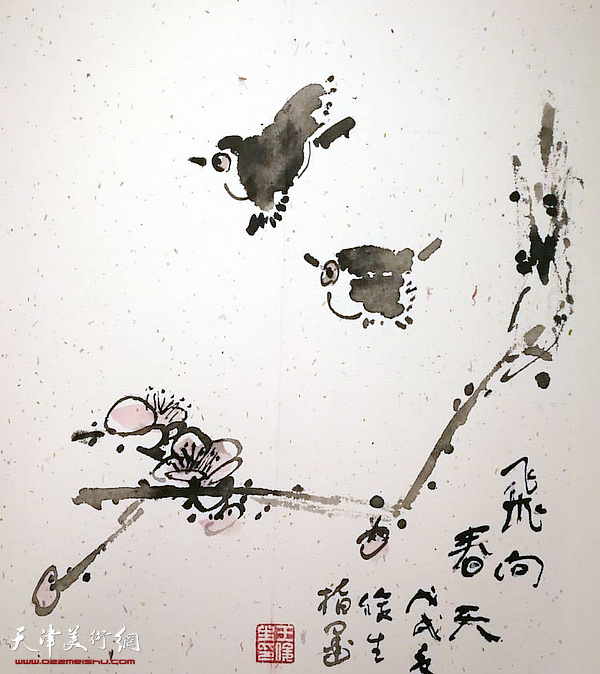 飛向
春天
戊戌春
俊生
指墨
天津美術網
www.022meishu.com